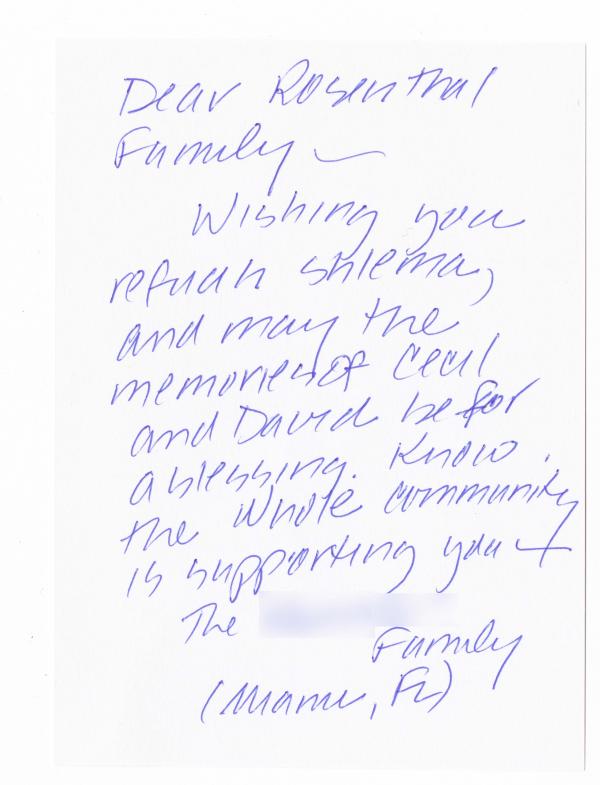 Dear Rosenthal
Family —
Wishing you
refuah shlema,
and may the
memories of Cecil
and David be for
a blessing. Know
the whole community
is supporting you —
The
Family
(Miami, FL)